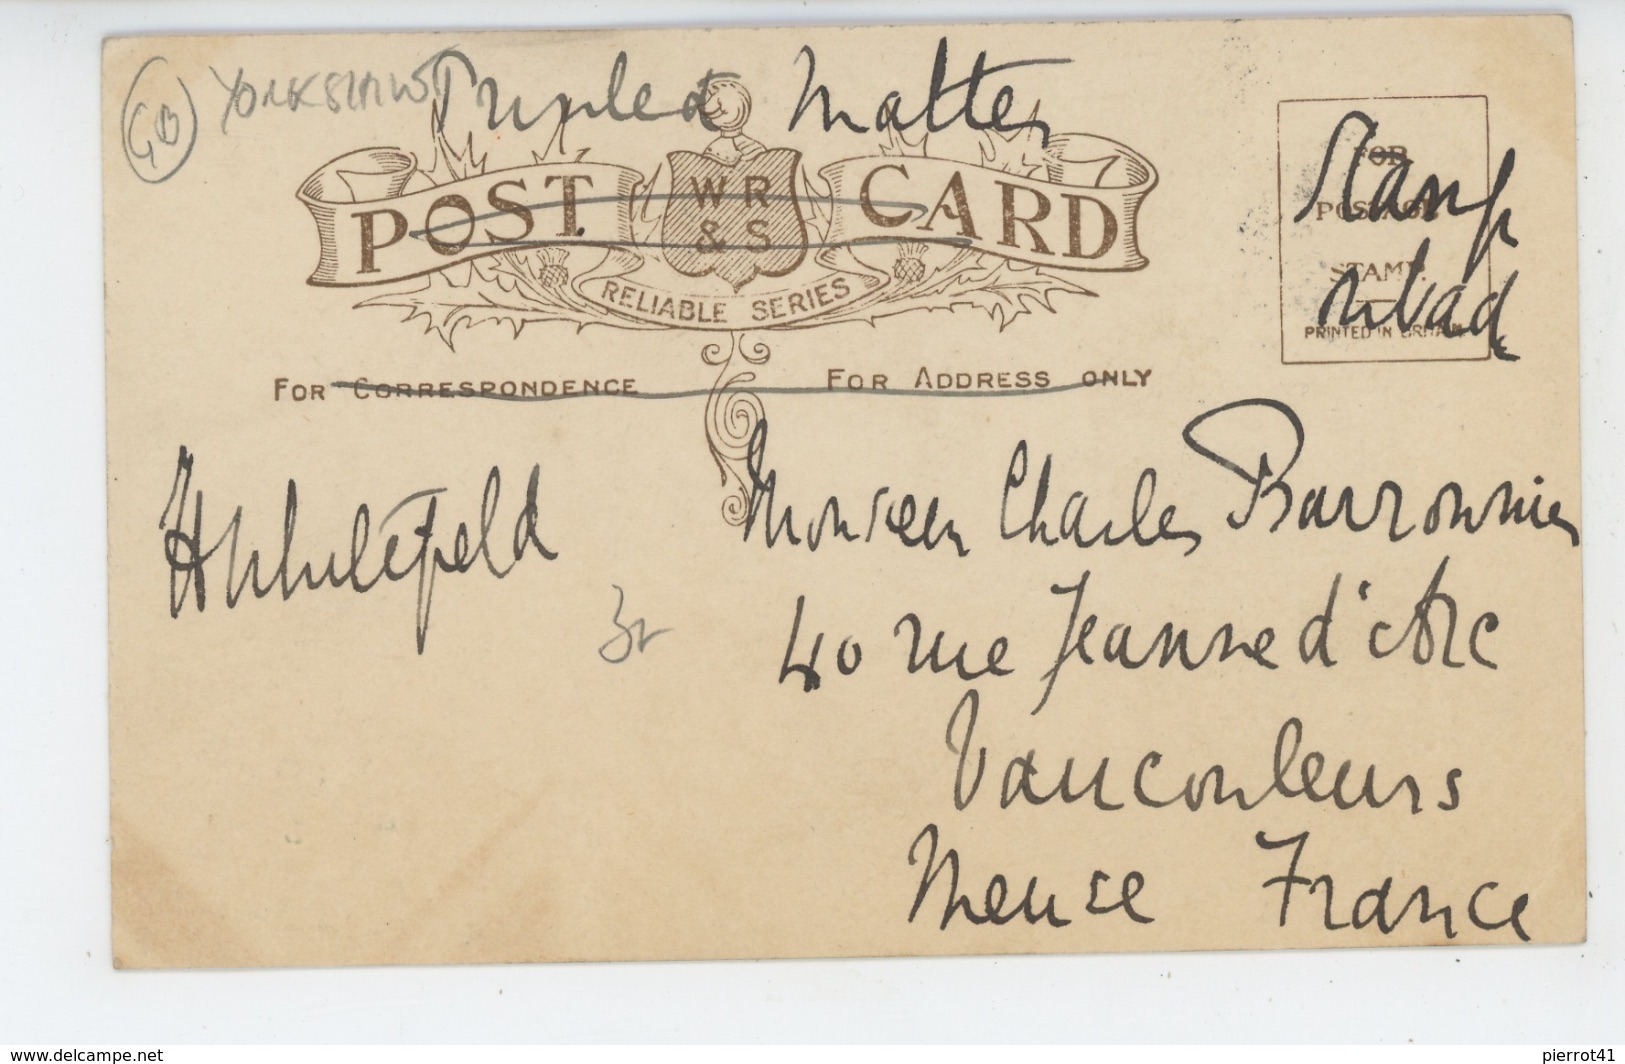 GB YORKSHIRE Printed Matter
POST W R & S CARD
RELIABLE SERIES
FOR POSTAGE STAMP.
PRINTED IN BRITAIN
Stamp
FOR CORRESPONDENCE FOR ADDRESS ONLY
Monsieur Charles Barronnier
40 rue Jeanne d'Arc
Vaucouleurs
Meuse France
www.delcampe.net pierrot41